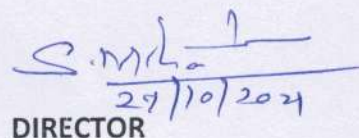 S.
27/10/2021
DIRECTOR